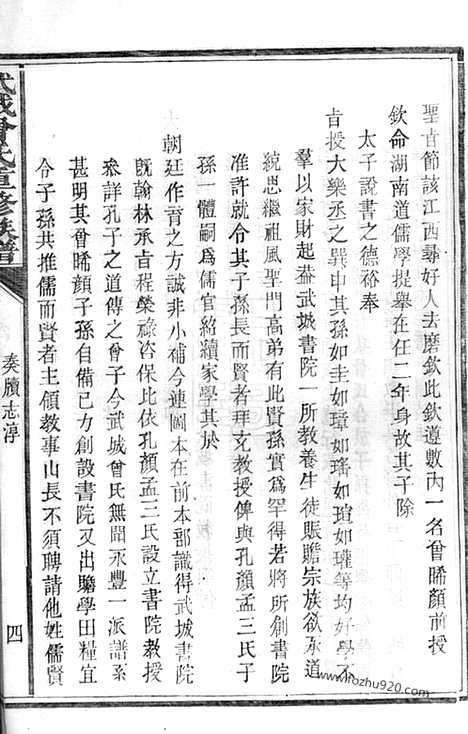 聖旨節該江西尋好人去磨欽此欽遵數內一名曾晞顏前授
欽命湖南道儒學提舉在任二年身故其子除
太子說書之德裕奉
旨授大樂丞之巽申其孫如圭如璋如瑤如瑄如瓘等均好學不
羣以家財起葢武城書院一所教養生徒賑贍宗族欲承道
統思繼祖風聖門高弟有此賢孫實爲罕得若將所創書院
准許就令其子孫長而賢者拜爻教授俾與孔顏孟三氏子
孫一體嗣爲儒官紹續家學其於
朝廷作育之方誠非小補今連圖本在前本部識得武城書院
旣翰林承旨程榮祿咨保比依孔顏孟三氏設立書院教授
叅詳孔子之道傳之曾子今武城曾氏無聞永豐一派譜系
甚明其曾晞顏子孫自備已力創設書院又出贍學田糧宜
令子孫共推儒而賢者主領教事山長不須聘請他姓儒賢
武城曾氏重修族譜
奏牘志淳
四
rozhu920.com